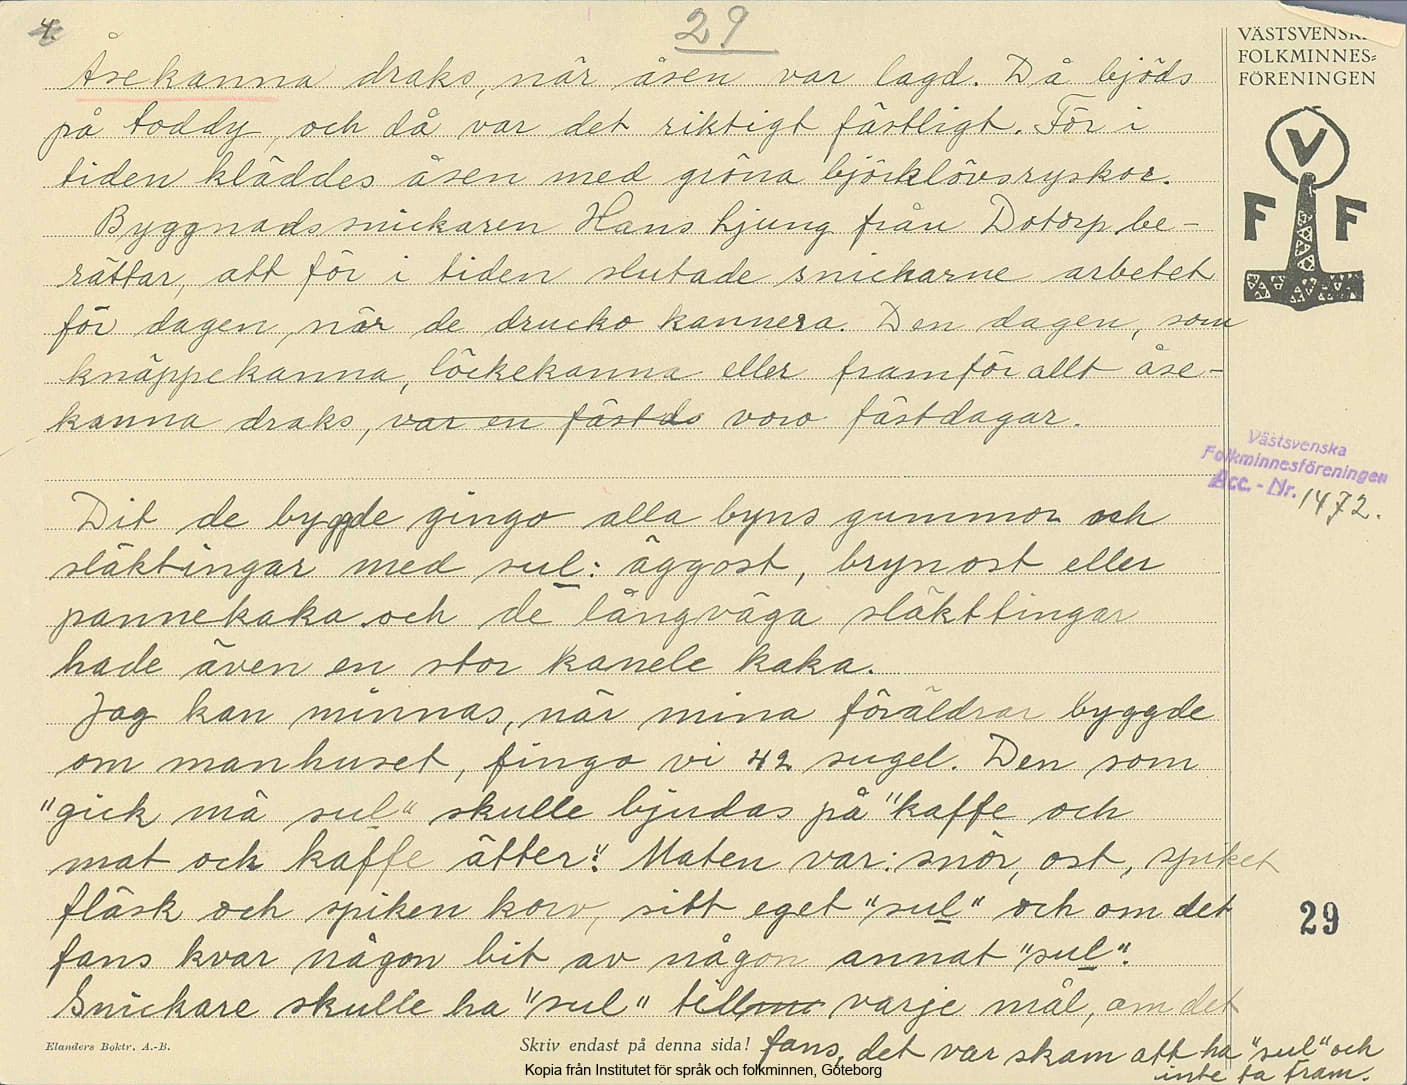 4.
29
VÄSTSVENSKA
FOLKMINNES=
FÖRENINGEN
V
F F
Åsekanna draks, när åsen var lagd. Då bjöds
på toddy, och då var det riktigt fästligt. För i
tiden kläddes åsen med gröna björklövsryskor.
Byggnadssnickaren Hans Ljung från Dotorp be-
rättar, att för i tiden slutade snickarne arbetet
för dagen, när de drucko kannera. Den dagen, som
knäppekanna, löckekanna eller framför allt åse-
kanna draks, var en fästds voro fästdagar.
Västsvenska
Folkminnesföreningen
Acc. - Nr. 1472.
Dit de byggde gingo alla byns gummor och
släktingar med sul: äggost, brynost eller
pannekaka och de långväga släkttingar
hade även en stor kanele kaka.
Jag kan minnas, när mina föräldrar byggde
om manhuset, fingo vi 42 sugel. Den som
"gick mä sul" skulle bjudas på "kaffe och
mat och kaffe ätter". Maten var: smör, ost, spiket
fläsk och spiken korv, sitt eget "sul" och om det
fans kvar någon bit av någon annat "sul".
Snickare skulle ha "sul" till varje mål, om det
fans, det var skam att ha "sul" och
inte ta fram.
29
Elanders Boktr. A.-B.
Skriv endast på denna sida!
Kopia från Institutet för språk och folkminnen, Göteborg